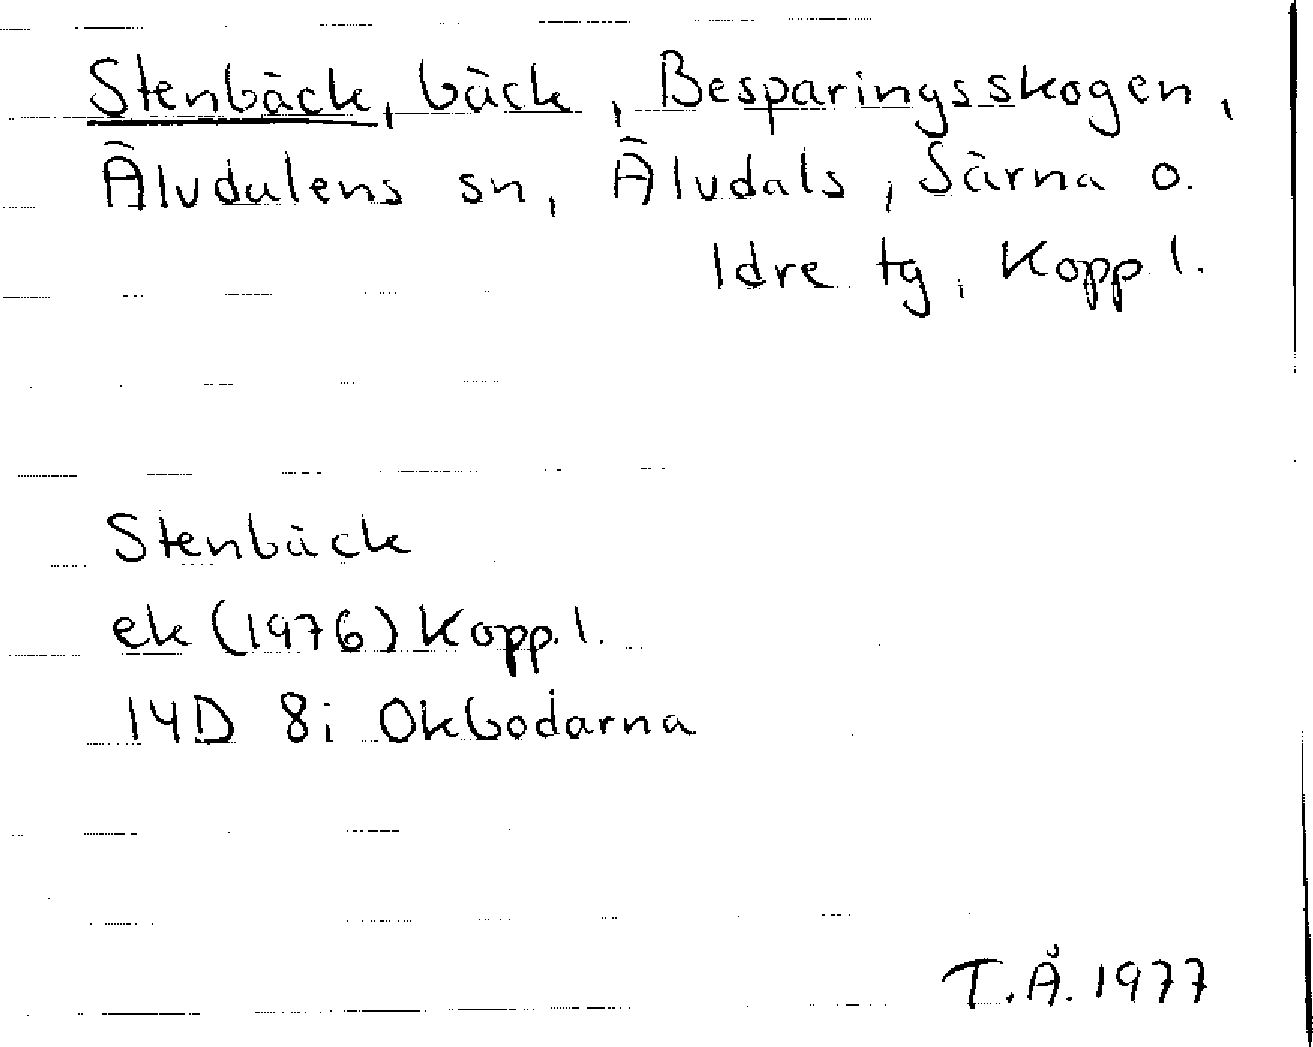 Stenbäck, bäck, Besparingsskogen,
Älvdalens sn, Älvdals, Särna o.
Idre tg, Kopp l.
Stenbäck
ek (1976) Kopp. l.
14D 8i Okbodarna
T.Å. 1977